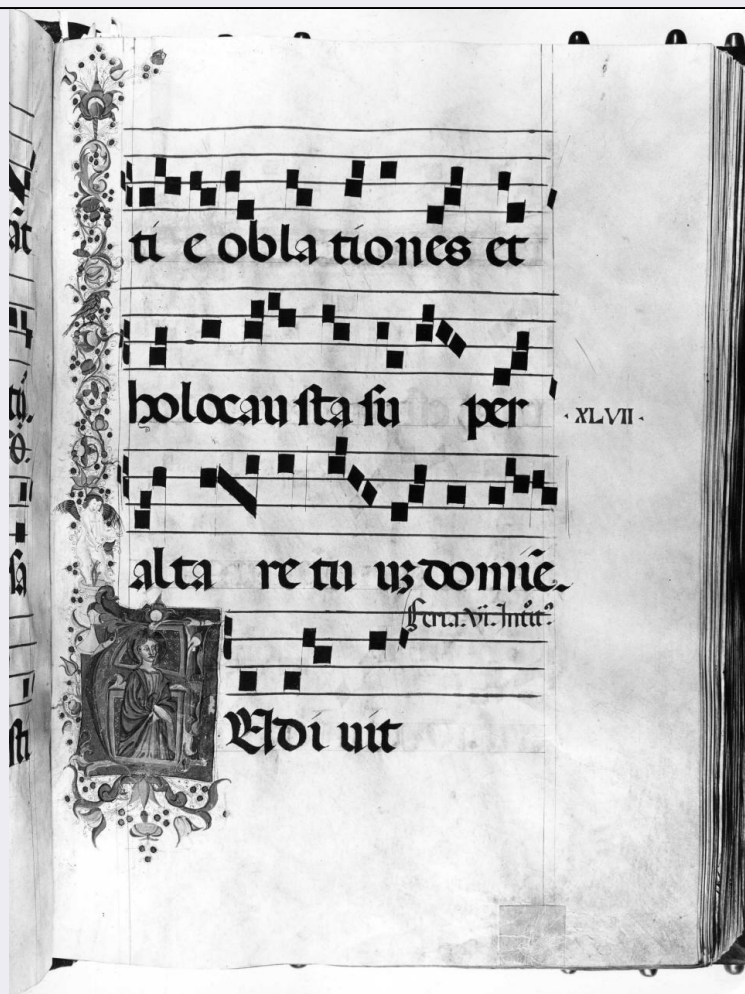 ti e obla tiones et
holocau sta su per
· XLVII ·
alta re tu uʒ domie.
Feria. Vi. Introit⁹.
Adi uit